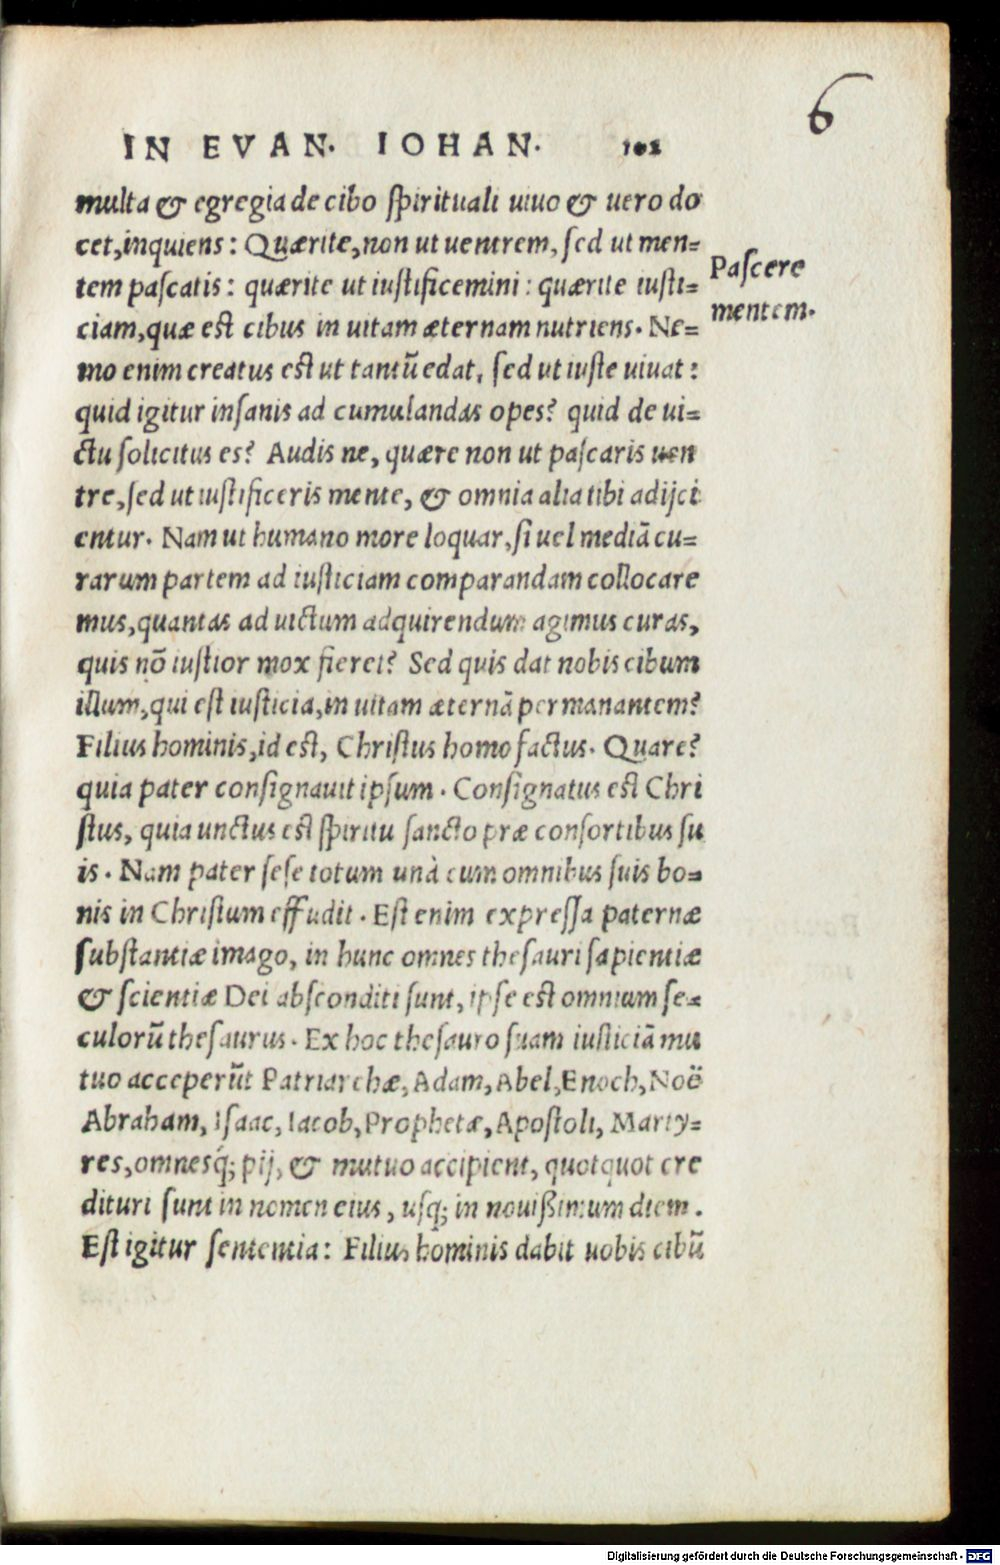 6
IN EVAN. IOHAN. 102
multa & egregia de cibo spirituali uiuo & uero do
cet, inquiens: Quærite, non ut uentrem, sed ut men=
tem pascatis: quærite ut iustificemini: quærite iusti=
ciam, quæ est cibus in uitam æternam nutriens. Ne=
mo enim creatus est ut tantũ edat, sed ut iuste uiuat:
quid igitur insanis ad cumulandas opes? quid de ui=
ctu solicitus es? Audis ne, quære non ut pascaris uen
tre, sed ut iustificeris mente, & omnia alia tibi adijci
entur. Nam ut humano more loquar, si uel mediã cu=
rarum partem ad iusticiam comparandam collocare
mus, quantas ad uictum adquirendum agimus curas,
quis nõ iustior mox fieret? Sed quis dat nobis cibum
illum, qui est iusticia, in uitam æternã permanantem?
Filius hominis, id est, Christus homo factus. Quare?
quia pater consignauit ipsum. Consignatus est Chri
stus, quia unctus est spiritu sancto præ consortibus su
is. Nam pater sese totum unà cum omnibus suis bo=
nis in Christum effudit. Est enim expressa paternæ
substantiæ imago, in hunc omnes thesauri sapientiæ
& scientiæ Dei absconditi sunt, ipse est omnium se=
culorũ thesaurus. Ex hoc thesauro suam iusticiã mu
tuo acceperũt Patriarchæ, Adam, Abel, Enoch, Noë
Abraham, Isaac, Iacob, Prophetæ, Apostoli, Marty=
res, omnesq́; pij, & mutuo accipient, quotquot cre
dituri sunt in nomen eius, usq; in nouißimum diem.
Est igitur sententia: Filius hominis dabit uobis cibũ
Pascere
mentem.
Digitalisierung gefördert durch die Deutsche Forschungsgemeinschaft - DFG